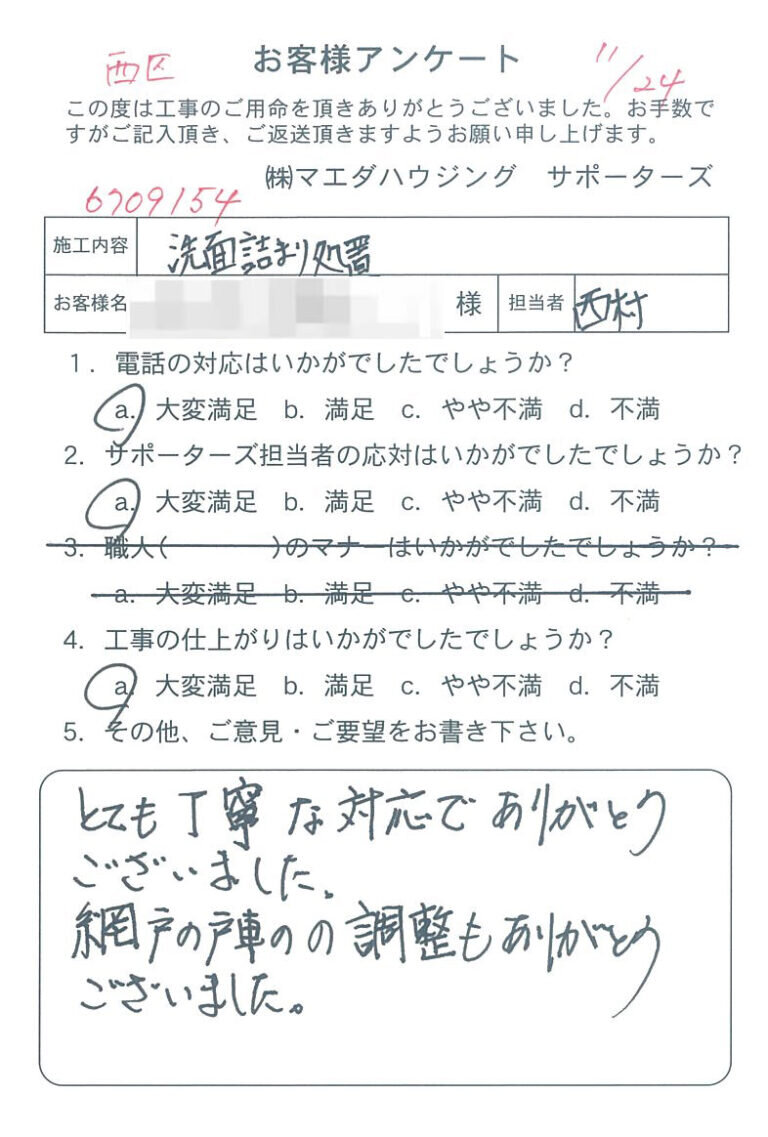 西区 お客様アンケート 11/24
この度は工事のご用命を頂きありがとうございました。お手数で
すがご記入頂き、ご返送頂きますようお願い申し上げます。
㈱マエダハウジング サポーターズ
6709154
施工内容 洗面詰まり処置
お客様名 様 担当者 西村
1. 電話の対応はいかがでしたでしょうか?
a. 大変満足 b. 満足 c. やや不満 d. 不満
2. サポーターズ担当者の応対はいかがでしたでしょうか?
a. 大変満足 b. 満足 c. やや不満 d. 不満
3. 職人( )のマナーはいかがでしたでしょうか?
a. 大変満足 b. 満足 c. やや不満 d. 不満
4. 工事の仕上がりはいかがでしたでしょうか?
a. 大変満足 b. 満足 c. やや不満 d. 不満
5. その他、ご意見・ご要望をお書き下さい。
とても丁寧な対応でありがとう
ございました。
網戸の戸車のの調整もありがとう
ございました。